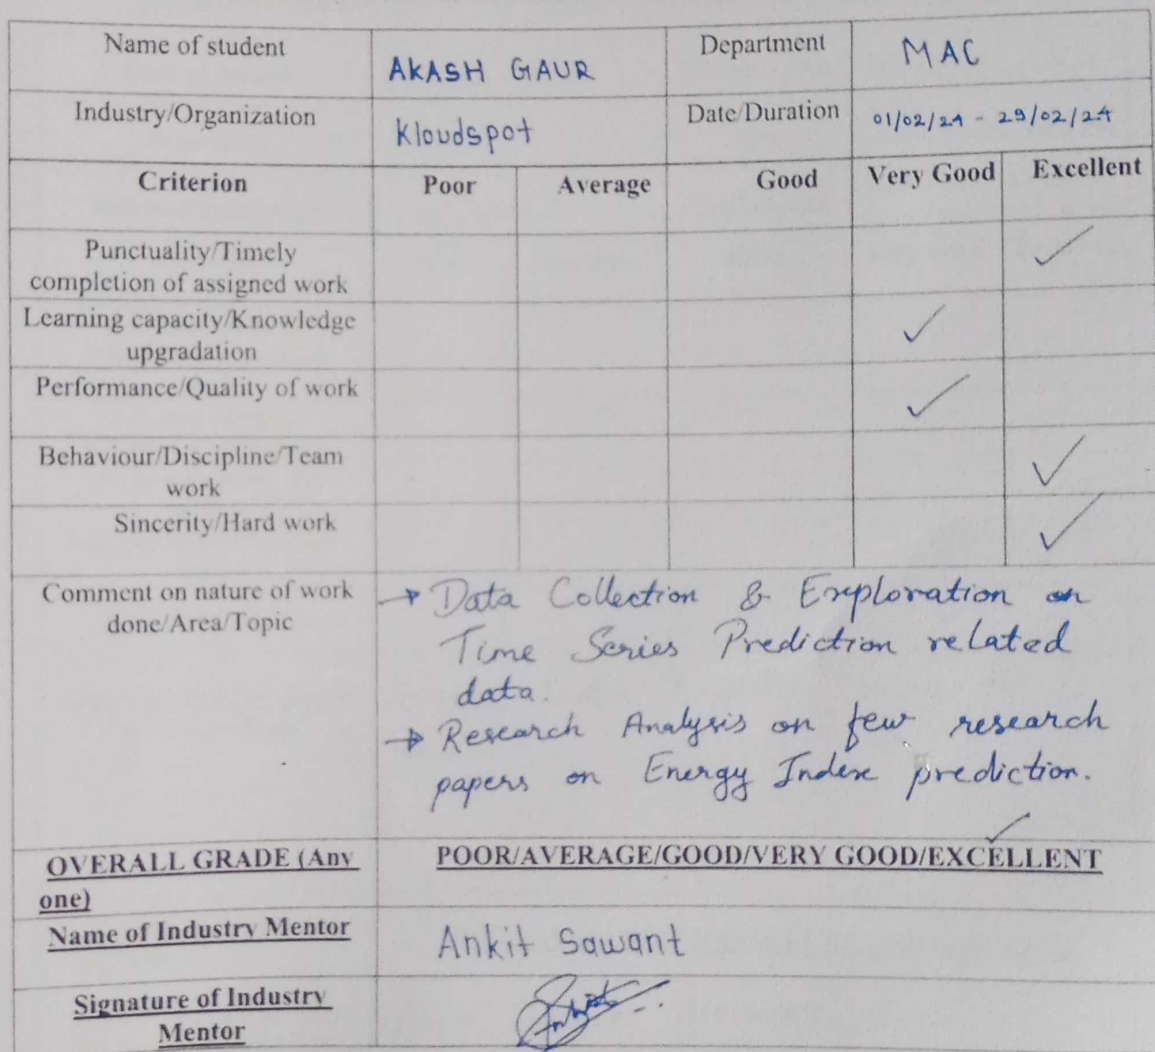 Name of student AKASH GAUR Department MAC
Industry/Organization Kloudspot Date/Duration 01/02/24 - 29/02/24
Criterion Poor Average Good Very Good Excellent
Punctuality/Timely
completion of assigned work ✓
Learning capacity/Knowledge
upgradation ✓
Performance/Quality of work ✓
Behaviour/Discipline/Team
work ✓
Sincerity/Hard work ✓
Comment on nature of work
done/Area/Topic
→ Data Collection & Exploration on
Time Series Prediction related
data.
→ Research Analysis on few research
papers on Energy Index prediction.
✓
OVERALL GRADE (Any
one)
POOR/AVERAGE/GOOD/VERY GOOD/EXCELLENT
Name of Industry Mentor Ankit Sawant
Signature of Industry
Mentor